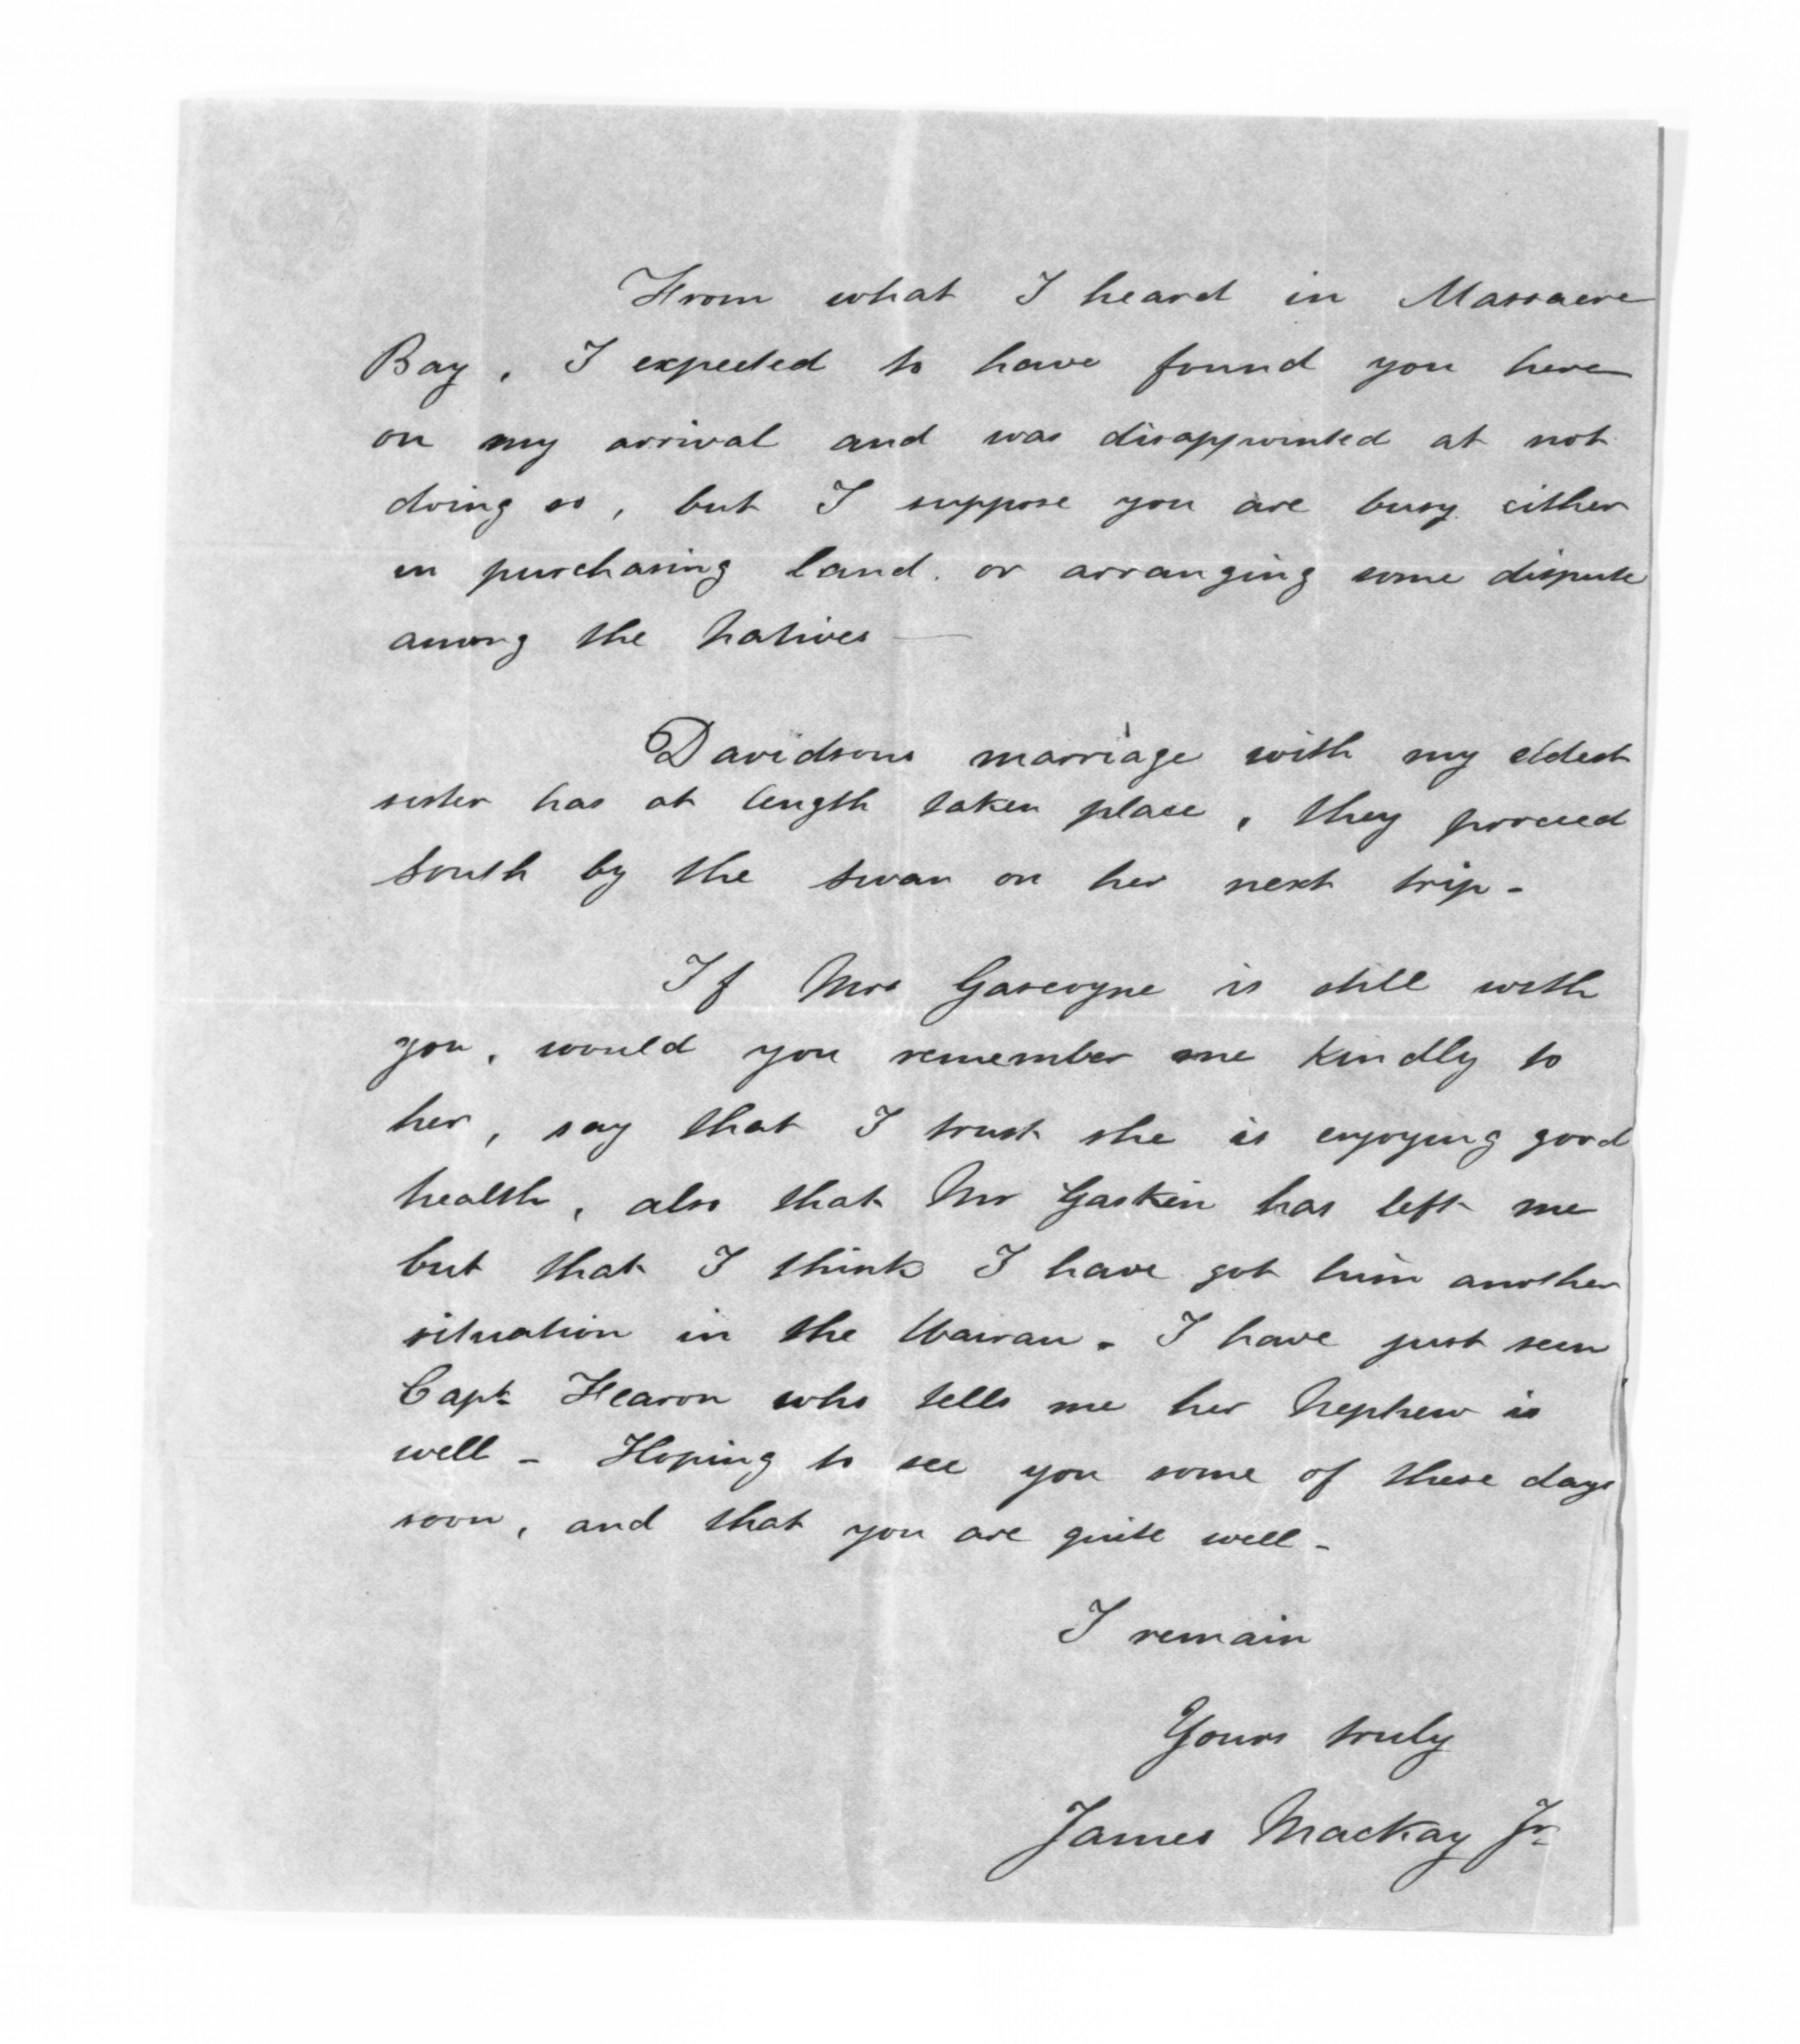 From what I heard in Massacre
Bay, I expected to have found you here
on my arrival and was disappointed at not
doing so, but I suppose you are busy either
in purchasing land. or arranging some dispute
among the Natives —
Davidsons marriage with my eldest
sister has at length taken place, they proceed
South by the Swan on her next trip -
If Mrs Gascoyne is still with
you, would you remember me kindly to
her, say that I trust she is enjoying good
health, also that Mr Gaskin has left me
but that I think I have got him another
situation in the Wairau. I have just seen
Capt. Fearon who tells me her Nephew is
well - Hoping to see you some of these days
soon, and that you are quite well -
I remain
Yours truly
James Mackay Jr.